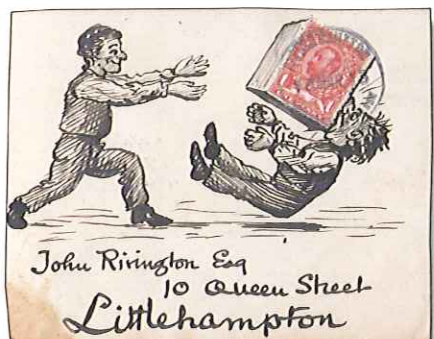 John Rivington Esq
10 Queen Street
Littlehampton